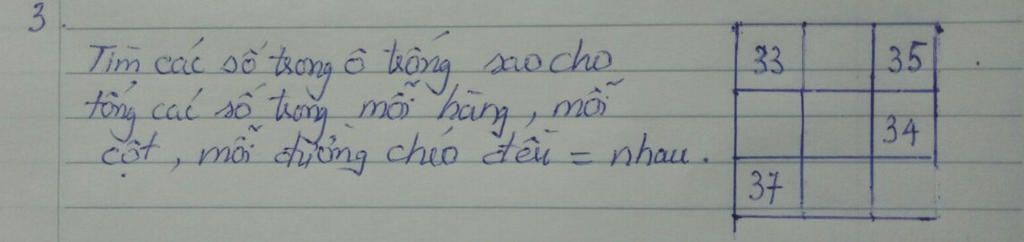 3.
Tìm các số trong ô trống sao cho
tổng các số trong mỗi hàng, mỗi
cột, mỗi đường chéo đều = nhau.
33 35
34
37